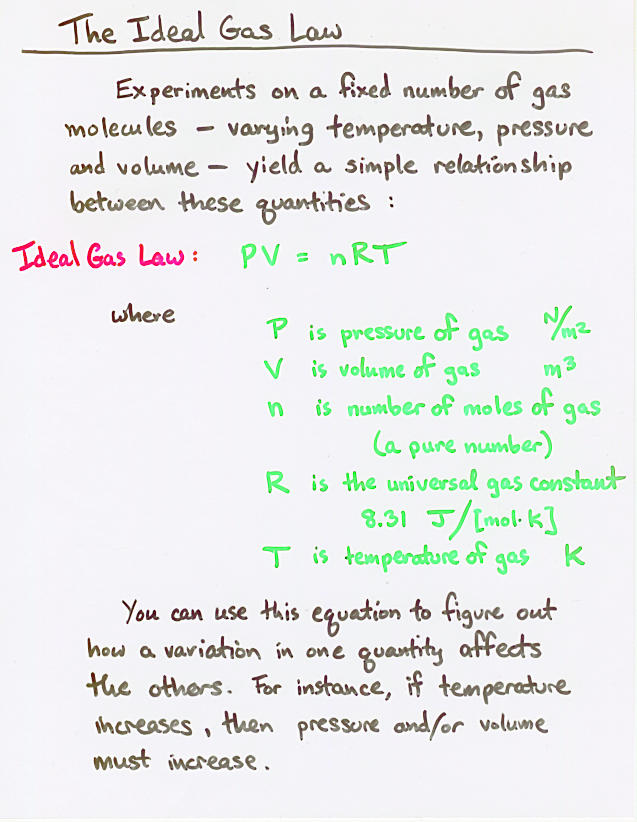 The Ideal Gas Law
Experiments on a fixed number of gas
molecules - varying temperature, pressure
and volume - yield a simple relationship
between these quantities :
Ideal Gas Law : PV = nRT
where
P is pressure of gas N/m2
V is volume of gas m3
n is number of moles of gas
(a pure number)
R is the universal gas constant
8.31 J/[mol·K]
T is temperature of gas K
You can use this equation to figure out
how a variation in one quantity affects
the others. For instance, if temperature
increases, then pressure and/or volume
must increase.